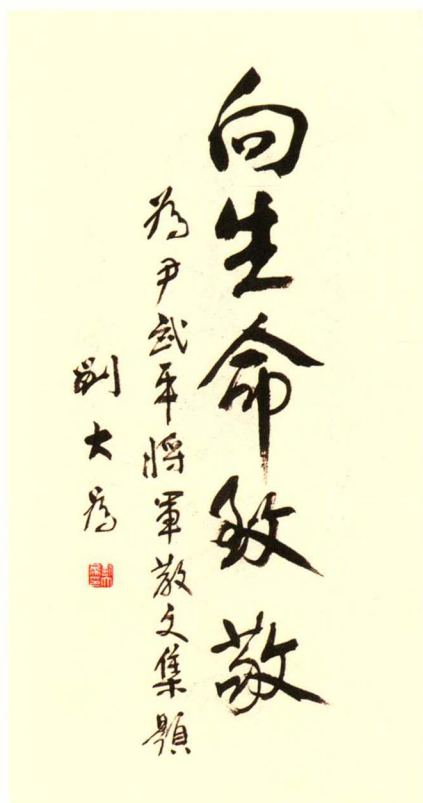 向生命致敬
為尹武平將軍散文集題
劉大為